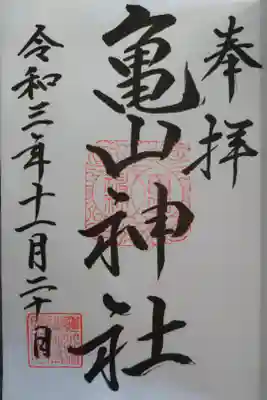 奉拝
亀山神社
令和三年十一月二十日